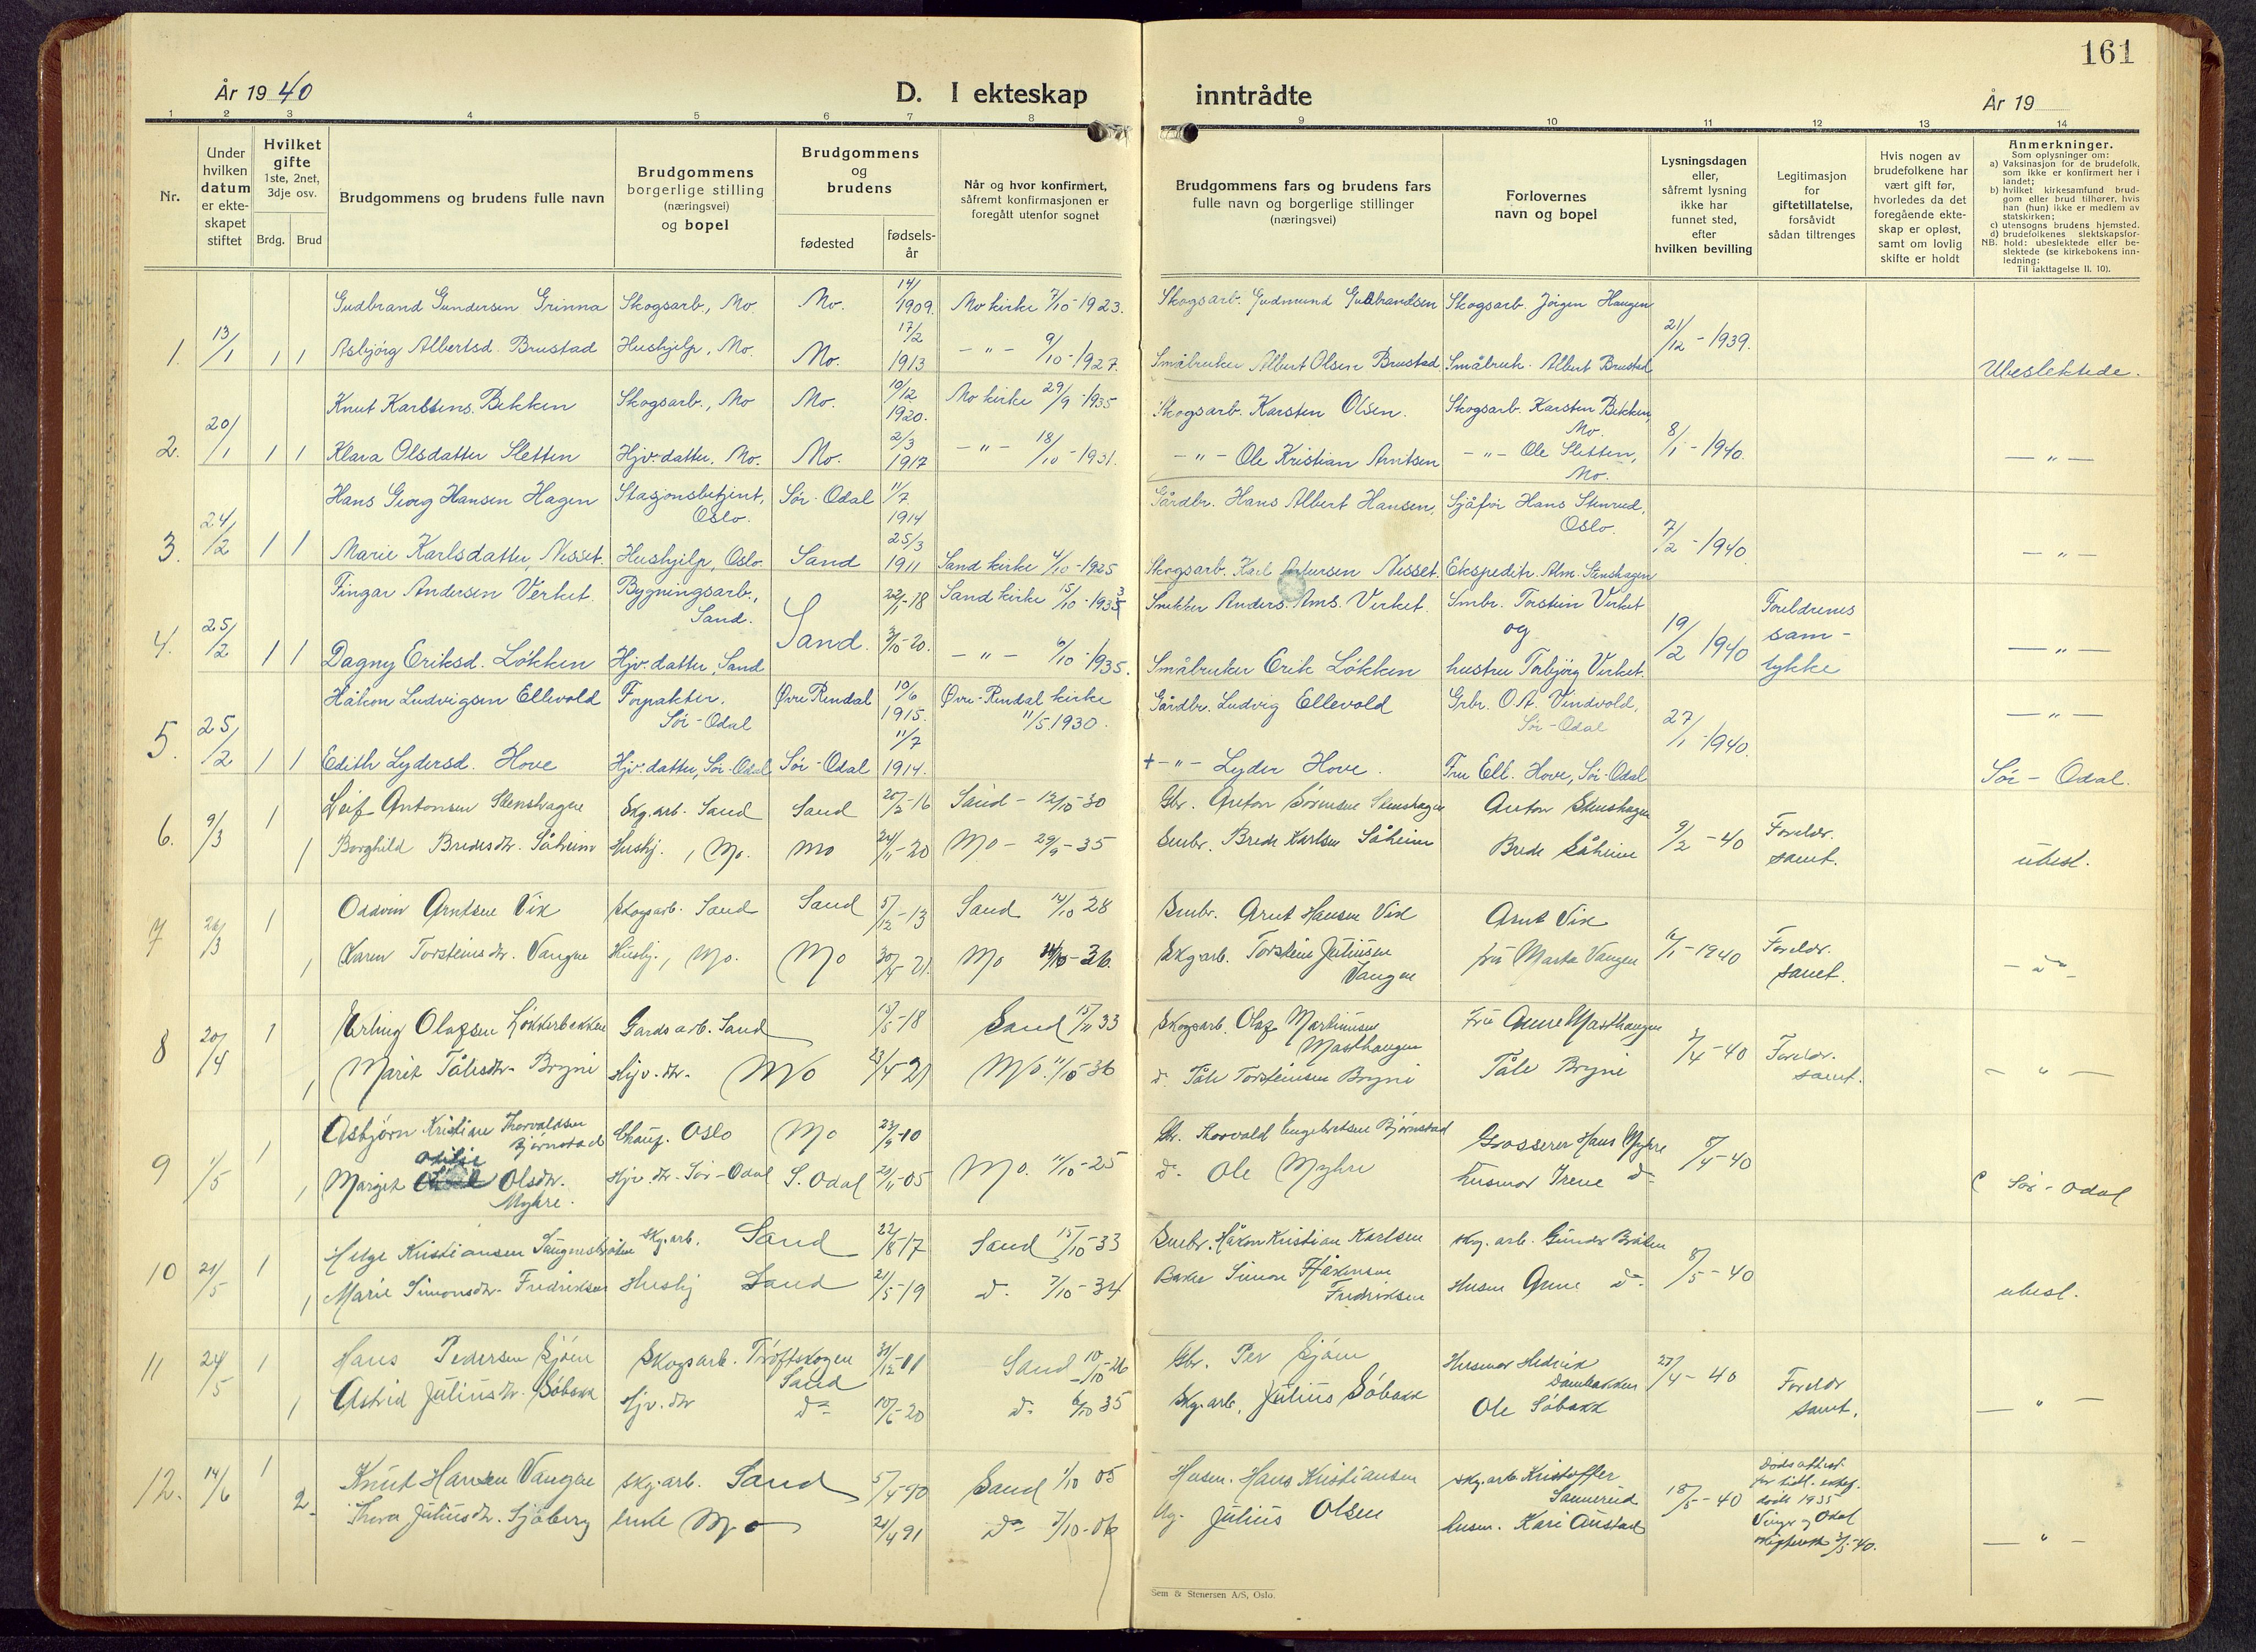 161
År 1940
D. I ekteskap inntrådte
År 19
1 2 3 4 5 6 7 8 9 10 11 12 13 14
Nr.
Under hvilken datum er ekteskapet stiftet
Hvilket gifte 1ste, 2net, 3dje osv.
Brdg. Brud
Brudgommens og brudens fulle navn
Brudgommens borgerlige stilling (næringsvei) og bopel
Brudgommens og brudens
fødested
fødselsår
Når og hvor konfirmert, såfremt konfirmasjonen er foregått utenfor sognet
Brudgommens fars og brudens fars fulle navn og borgerlige stillinger (næringsvei)
Forlovernes navn og bopel
Lysningsdagen eller, såfremt lysning ikke har funnet sted, efter hvilken bevilling
Legitimasjon for giftetillatelse, forsåvidt sådan tiltrenges
Hvis nogen av brudefolkene har vært gift før, hvorledes da det foregående ekteskap er opløst, samt om lovlig skifte er holdt
Anmerkninger.
Som oplysninger om:
a) Vaksinasjon for de brudefolk, som ikke er konfirmert her i landet;
b) hvilket kirkesamfund brudgom eller brud tilhører, hvis han (hun) ikke er medlem av statskirken;
c) utensogns brudens hjemsted.
d) brudefolkenes slektskapsforhold: ubeslektede eller beslektede (se kirkebokens innledning:
NB. Til iakttagelse II. 10).
Gudbrand Gundersen Grinna Skogsarb., Mo. Mo. 14/1 1909. Mo kirke 7/10-1923. Skogsarb. Gudmund Gulbrandsen Skogsarb. Jörgen Haugen
1. 13/1 1 1 Asbjörg Albertsd. Brustad Hushjelp, Mo. Mo. 17/2 1913 - " - 9/10-1927. Småbruker Albert Olsen Brustad Småbruk. Albert Brustad 21/12-1939. Ubeslektede.
Knut Karstens. Bekken Skogsarb., Mo Mo. 10/12 1920. Mo kirke 29/9-1935 Skogsarb. Karsten Olsen. Skogsarb. Karsten Bekken, Mo.
2. 20/1 1 1 Klara Olsdatter Sletten Hjv. datter, Mo. Mo. 2/3 1917 - " - 18/10-1931. - " - Ole Kristian Arntsen - " - Ole Sletten, Mo. 8/1-1940. - " -
Hans Georg Hansen Hagen Stasjonsbetjent, Oslo. Sör-Odal 11/7 1914 Gårdbr. Hans Albert Hansen, Sjåför Hans Stenrud, Oslo.
3. 24/2 1 1 Marie Karlsdatter Nesset. Hushjelp, Oslo. Sand 25/3 1911 Sand kirke 4/10-1925 Skogsarb. Karl Nesset. Ekspeditr. Alm. Stenshagen 7/2-1940 - " -
Fingar Andersen Verket. Bygningsarb., Sand. 22/1-18 Sand kirke 15/10-1933 Snekker Anders Ams. Verket. Smbr. Torstein Verket og
4. 25/2 1 1 Dagny Eriksd. Lökken Hjv. datter, Sand Sand. 3/10-20. - " - 6/10-1935. Småbruker Erik Lökken hustru Torbjörg Verket. 19/2 1940 Foreldrenes samtykke - " -
Håkon Ludvigsen Ellevold Forpakter. Sör-Odal Øvre Rendal 10/6 1915. Øvre-Rendal kirke 11/5 1930. Gårdbr. Ludvig Ellevold Grbr. O.A. Vindvold, Sör-Odal - " -
5. 25/2 1 1 Edith Lydersd. Hove Hjv. datter, Sör-Odal Sör-Odal 11/7 1914. + - " - Lyder Hove. Fru Ell. Hove, Sör-Odal 27/1-1940. Sör-Odal.
6. 9/3 1 Leif Antonsen Stenshagen Skg.arb. Sand Sand 20/2-16 Sand - 12/10-30 Gbr. Anton Sörensen Stenshagen Anton Stenshagen
1 Borghild Bredesdtr. Såheim Hushj., Mo. Mo 24/11-20 Mo - 29/9-35 Smbr. Brede Karlsen Såheim Brede Såheim 9/2-40 Foreldr. samt. ubesl.
7 26/3 1 Oddvin Arntsen Vik Skogsarb. Sand Sand 5/12-13 Sand 14/10 28 Smbr. Arnt Hansen Vik Arnt Vik
1 Karen Torsteinsdtr. Vangen Hushj., Mo. Mo 30/4-21 Mo 10-36. Skg.arb. Torstein Juliusen Vangen fru Marta Vangen 1-1940 Foreldr. samt. - do -
8 20/4 1 Erling Olafsen Lökkerbakken Gardsarb. Sand 13/5-18 Sand 15/11 33 Skogsarb. Olaf Martinsen Masthaugen Fru Anne Masthaugen
1 Marit Tålesdtr. Bryni Hjv. dtr. Mo 23/4 21 Mo. 11/10-36 d. Tåle Torsteinsen Bryni Tåle Bryni 3/4-40 Foreldr. samt. - " -
9 11/5 1 Asbjørn Kristian Thorvaldsen Bjørnstad Chauf. Oslo Mo 23/9-10 Gbr. Thorvald Engebretsen Bjørnstad Grosserer Hans Myhre
1 Margit Otilie Olsdtr. Myhre. Hjv. dtr. Sör-Odal S. Odal 29/11-05 Mo. 11/10-25 d. Ole Myhre husmor Irene do 5/4-40 c Sör-Odal
10 21/5 1 Helge Kristiansen Skg.arb. Sand 22/8-17 Sand 15/10-33 Smbr. Håkon Kristian Karlsen Skg. arb. Gunder Bråten
1 Marie Simonsdtr. Fredriksen Hushj Sand 21/5-19 d. 7/10-34 Simon Håkensen Fredriksen Husm Anne do 8/5-40 ubesl.
11 24/5 1 Hans Pedersen Sjöen Skogsarb. Tröftskogen Sand 31/12-11 Sand 10/10-26 Gbr. Per Sjöen Husmor Hedvik Dambakken
1 Astrid Juliusdtr. Söbakk Hjv. dtr do 10/6-20 d. 6/10 35 Skg.arb. Julius Söbakk Ole Söbakk 27/4-40 Foreldr samt. - " -
12. 14/6 1 Knut Hansen Vangen skg.arb. Sand 5/4-90 Sand 1/10 05 Husm. Hans Kristiansen skg.arb. Kristoffer Sannerud
2. Thora Juliusdtr. Sjöberg enke Mo 21/4 91 do 7/10-06 Julius Olsen husm. Kari Austad 18/5-40 Dødsattest for tidl. ektef. død 1935 Vinger og Odal 40. - " -
Sem & Stenersen A/S, Oslo.